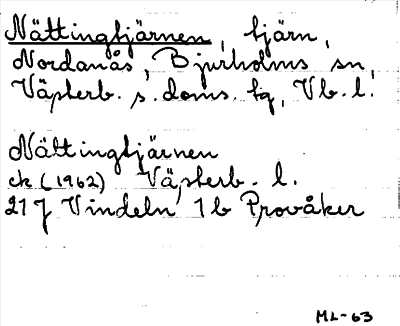 Nättingtjärnen, tjärn,
Nordanås, Bjurholms sn,
Västerb. s. doms. tg, Vb. l.
Nättingtjärnen
ek (1962) Västerb. l.
21 J Vindeln 1b Provåker
ML-63